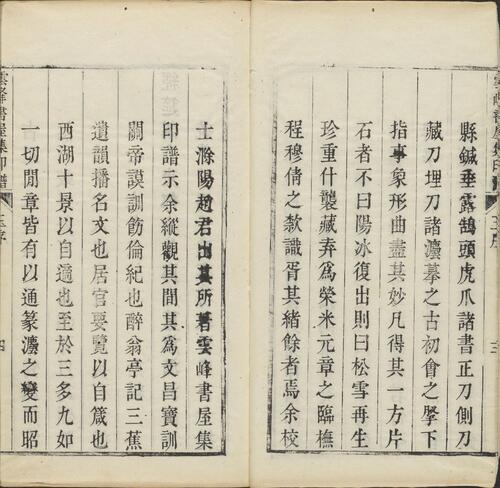 縣鍼垂露鵠頭虎爪諸書正刀側刀
藏刀埋刀諸灋摹之古初會之擘下
指事象形曲盡其妙凡得其一方片
石者不曰陽冰復出則曰松雪再生
珍重什襲藏弆為榮米元章之臨橅
程穆倩之欵識胥其緒餘者焉余校
士滁陽趙君出其所著雲峰書屋集
印譜示余縱觀其間其為文昌寶訓
關帝謨訓飭倫紀也醉翁亭記三蕉
遺韻播名文也居官要覽以自箴也
西湖十景以自適也至於三多九如
一切閒章皆有以通篆灋之變而昭
雲峰書屋集印譜